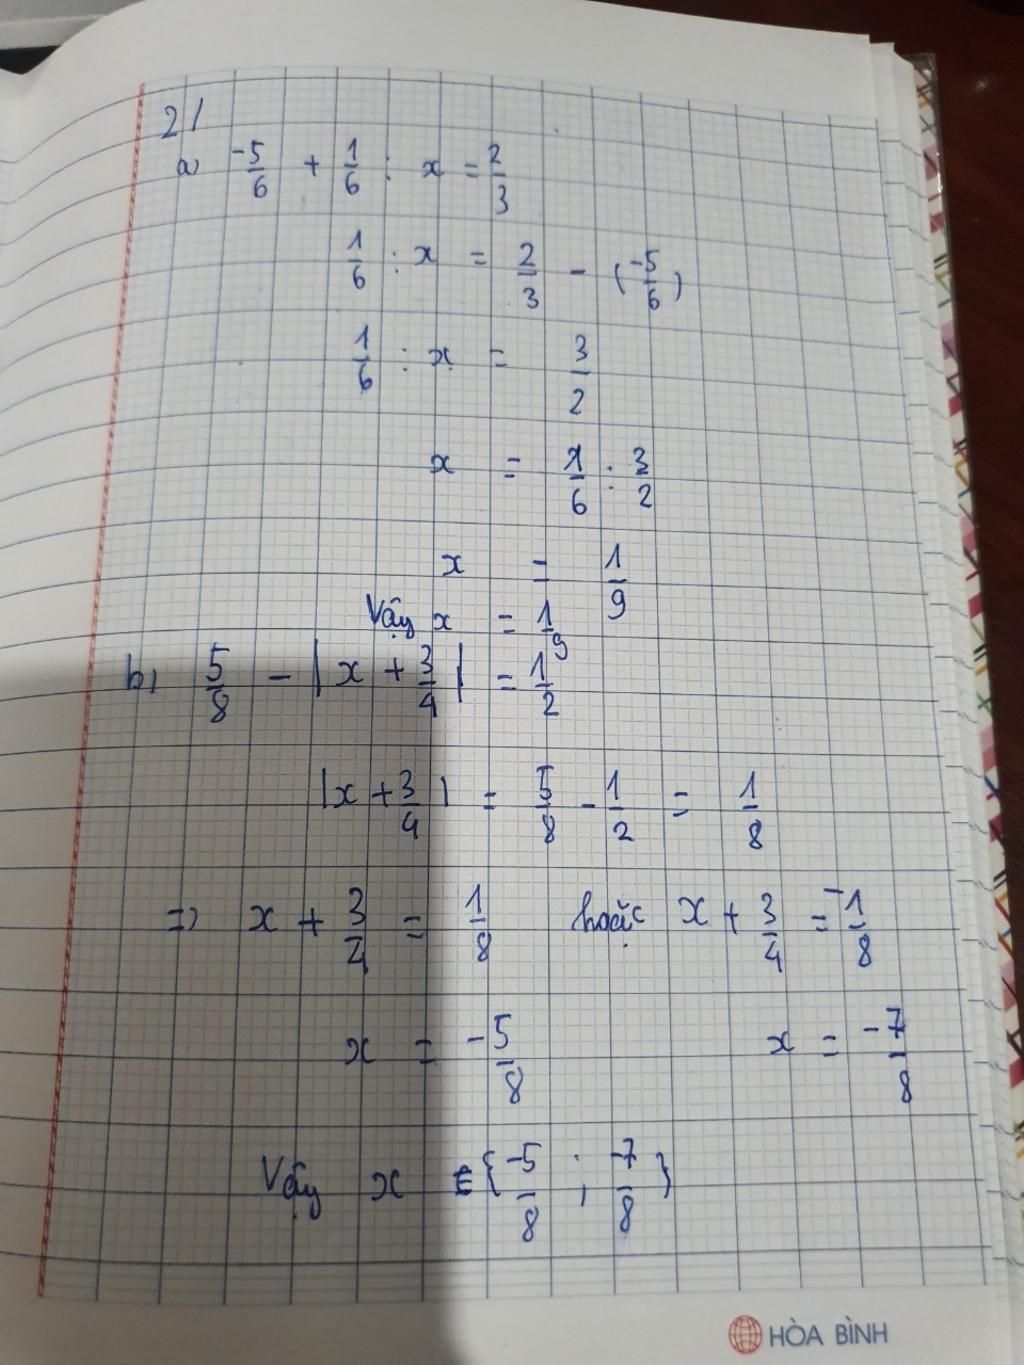 2/
a) -5/6 + 1/6 : x = 2/3
1/6 : x = 2/3 - (-5/6)
1/6 : x = 3/2
x = 1/6 : 3/2
x = 1/9
Vậy x = 1/9
b) 5/8 - |x + 3/4| = 1/2
|x + 3/4| = 5/8 - 1/2 = 1/8
=> x + 3/4 = 1/8 hoặc x + 3/4 = -1/8
x = -5/8 x = -7/8
Vậy x ∈ {-5/8 ; -7/8}
HÒA BÌNH